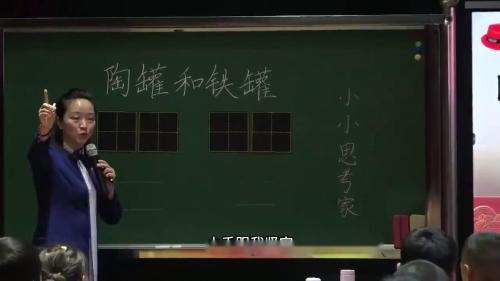 陶罐和铁罐
小小思考家